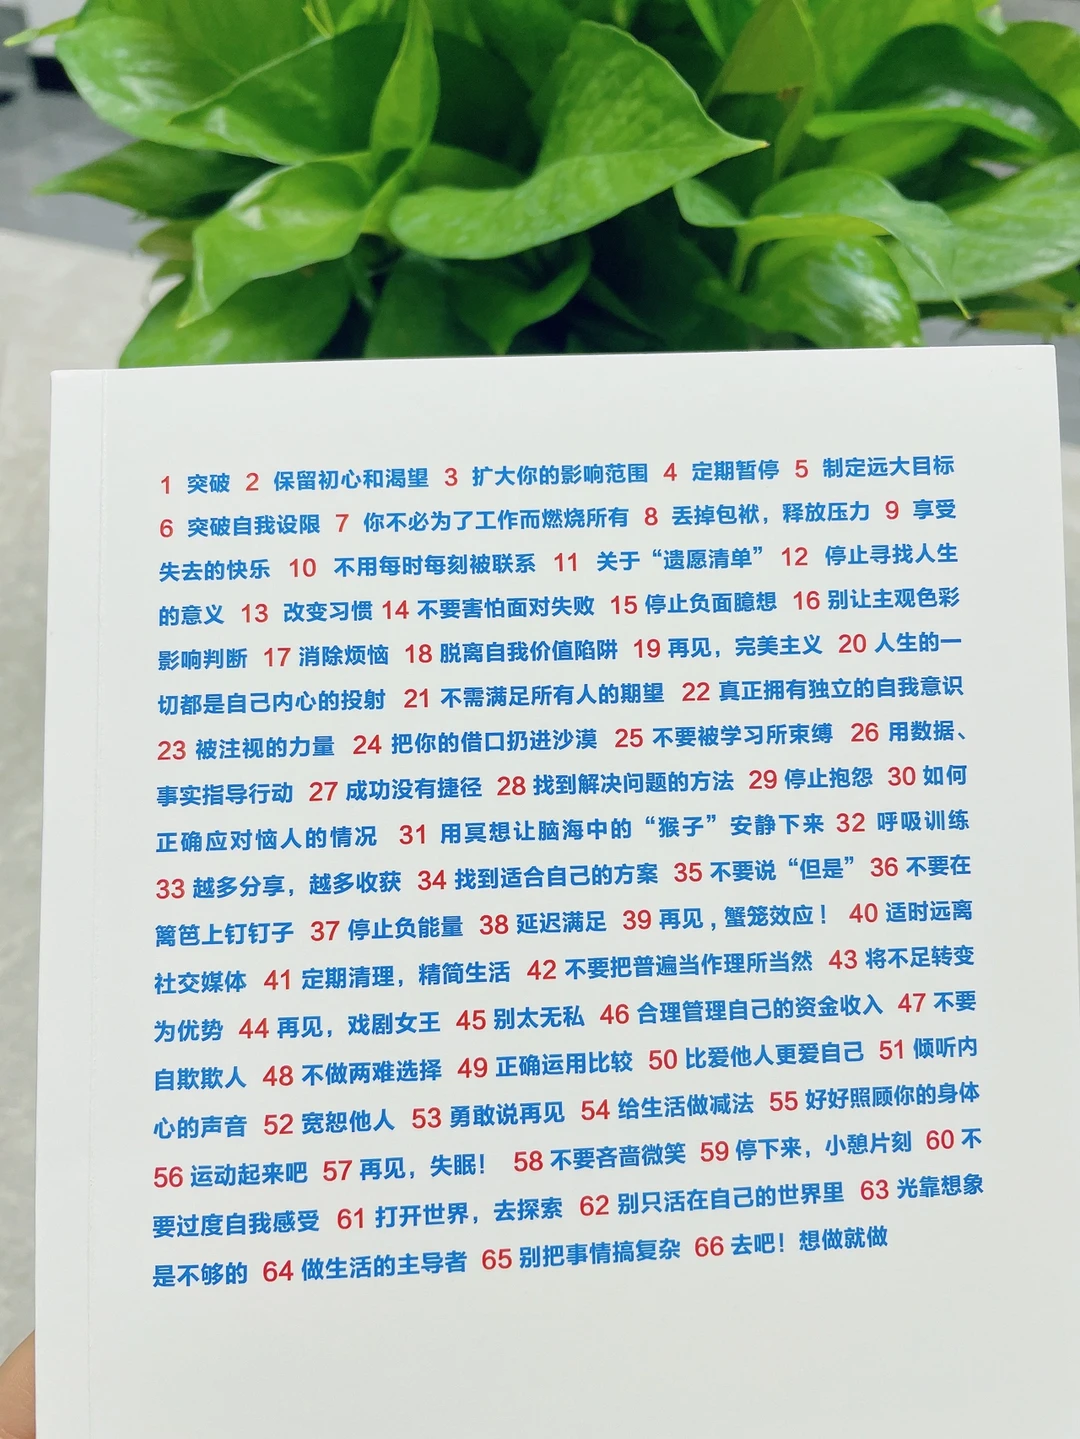 1 突破 2 保留初心和渴望 3 扩大你的影响范围 4 定期暂停 5 制定远大目标
6 突破自我设限 7 你不必为了工作而燃烧所有 8 丢掉包袱，释放压力 9 享受
失去的快乐 10 不用每时每刻被联系 11 关于“遗愿清单” 12 停止寻找人生
的意义 13 改变习惯 14 不要害怕面对失败 15 停止负面臆想 16 别让主观色彩
影响判断 17 消除烦恼 18 脱离自我价值陷阱 19 再见，完美主义 20 人生的一
切都是自己内心的投射 21 不需满足所有人的期望 22 真正拥有独立的自我意识
23 被注视的力量 24 把你的借口扔进沙漠 25 不要被学习所束缚 26 用数据、
事实指导行动 27 成功没有捷径 28 找到解决问题的方法 29 停止抱怨 30 如何
正确应对恼人的情况 31 用冥想让脑海中的“猴子”安静下来 32 呼吸训练
33 越多分享，越多收获 34 找到适合自己的方案 35 不要说“但是” 36 不要在
篱笆上钉钉子 37 停止负能量 38 延迟满足 39 再见，蟹笼效应！ 40 适时远离
社交媒体 41 定期清理，精简生活 42 不要把普遍当作理所当然 43 将不足转变
为优势 44 再见，戏剧女王 45 别太无私 46 合理管理自己的资金收入 47 不要
自欺欺人 48 不做两难选择 49 正确运用比较 50 比爱他人更爱自己 51 倾听内
心的声音 52 宽恕他人 53 勇敢说再见 54 给生活做减法 55 好好照顾你的身体
56 运动起来吧 57 再见，失眠！ 58 不要吝啬微笑 59 停下来，小憩片刻 60 不
要过度自我感受 61 打开世界，去探索 62 别只活在自己的世界里 63 光靠想象
是不够的 64 做生活的主导者 65 别把事情搞复杂 66 去吧！想做就做